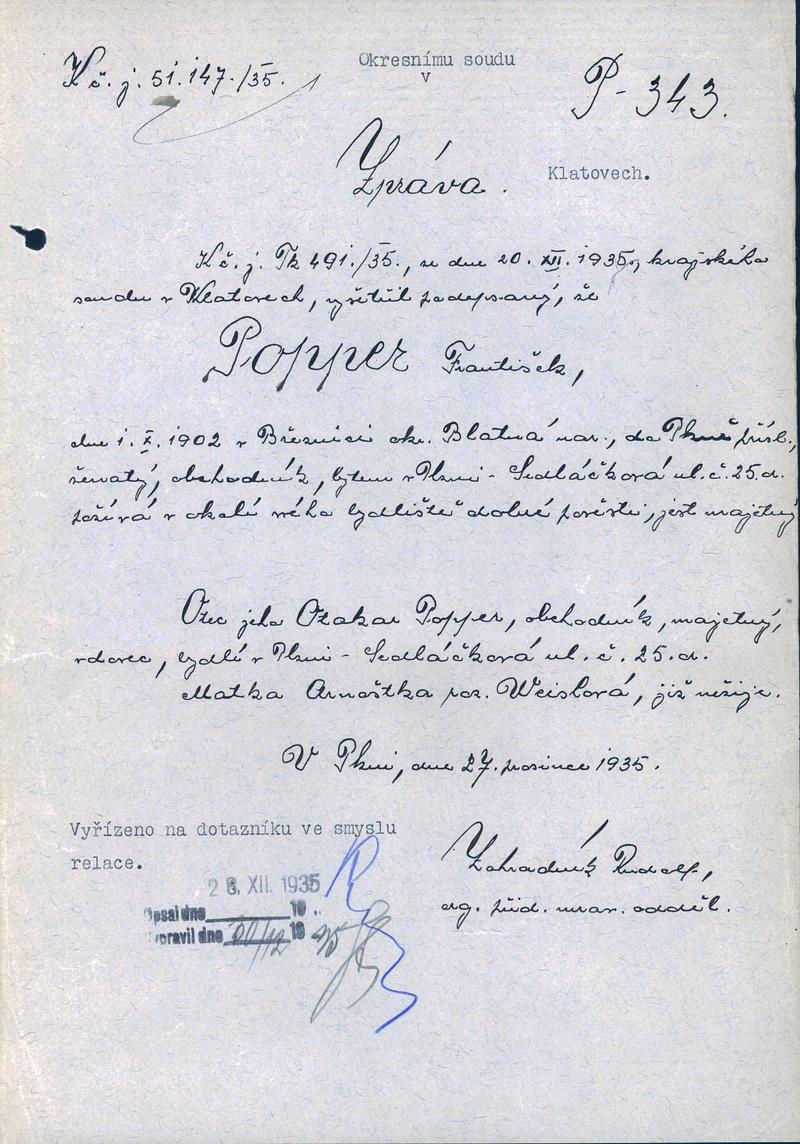 K č. j. 51.147./35.
Okresnímu soudu
v
P - 343.
Klatovech.
Zpráva.
K č. j. Tk 491./35., ze dne 20. XII. 1935, krajského
soudu v Klatovech, vyšetřil podepsaný, že
Popper František,
dne 1. X. 1902 v Březnici okr. Blatná nar., do Plzně přísl.,
ženatý, obchodník, bytem v Plzni - Sedláčková ul. č. 25. d.
požívá v okolí svého bydliště dobré pověsti, jest majetný
Otec jeho Otakar Popper, obchodník, majetný,
vdovec, bydlí v Plzni - Sedláčková ul. č. 25. d.
Matka Arnoštka roz. Weislová, již nežije.
V Plzni, dne 27. prosince 1935.
Vyřízeno na dotazníku ve smyslu
relace.
Zahradník Rudolf,
ag. přid. mrav. odděl.
28. XII. 1935
Opsal dne 19
pravil dne 30/12 19 35